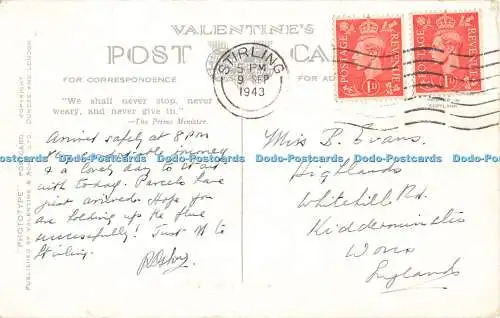 VALENTINE'S
POST CARD
FOR CORRESPONDENCE
FOR AD
"We shall never stop, never
weary, and never give in."
—The Prime Minister.
STIRLING
5 PM
9 SEP
1943
POSTAGE REVENUE
1D
POSTAGE REVENUE
1D
"PHOTOTYPE" POSTCARD. COPYRIGHT.
PUBLISHED BY VALENTINE & SONS, LTD. DUNDEE AND LONDON
Arrived safely at 8PM
journey
& a lovely day to start
with today. Parcels have
just arrived. Hope you
are holding up the
successfully! Just off to
Stirling.
Miss B. Evans.
Highlands
Whitehill Rd.
Kidderminster
Worcs
England
Dodo-Postcards Dodo-Postcards Dodo-Postcards Dodo-Postcards Dodo-Postcards Dodo-Postcards